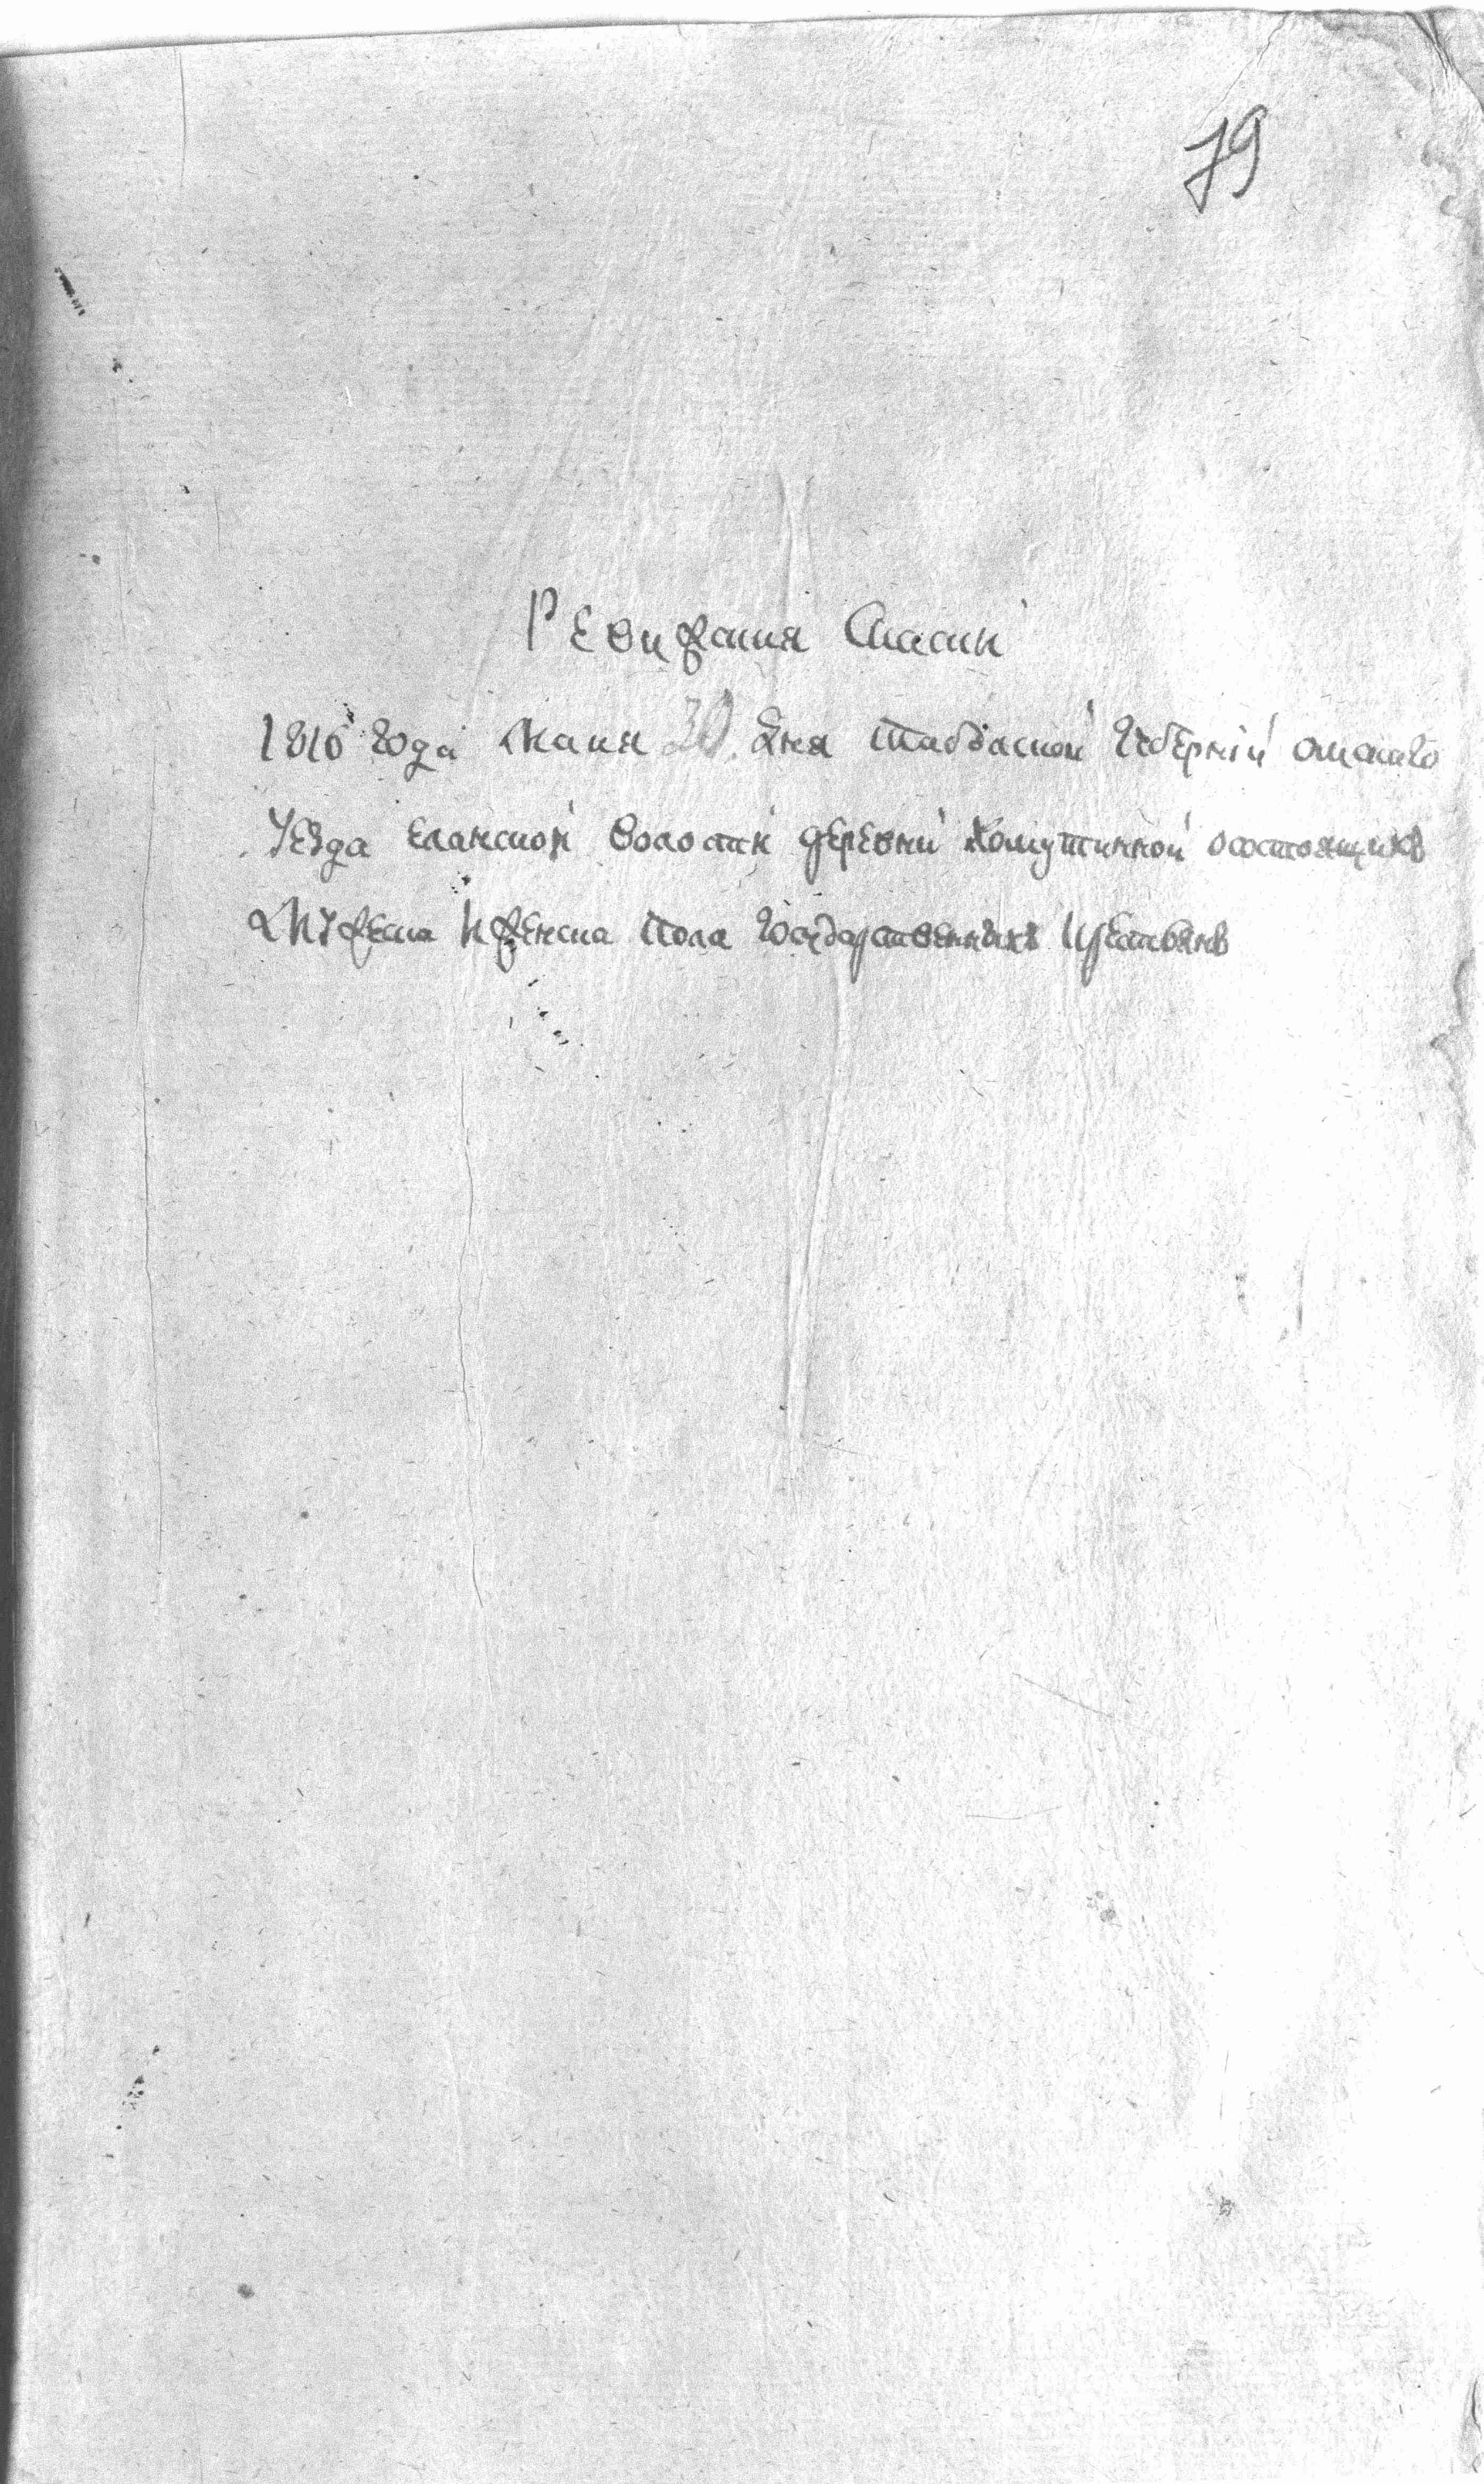 79
Ревижская Сказка
1816 Года Маия 30 Дня Табольской Губернiй омскаго
Уезда Еланской волости деревни Хомутинной осостоящихъ
Мужеска Иженска пола Государственныхъ Крестьянъ